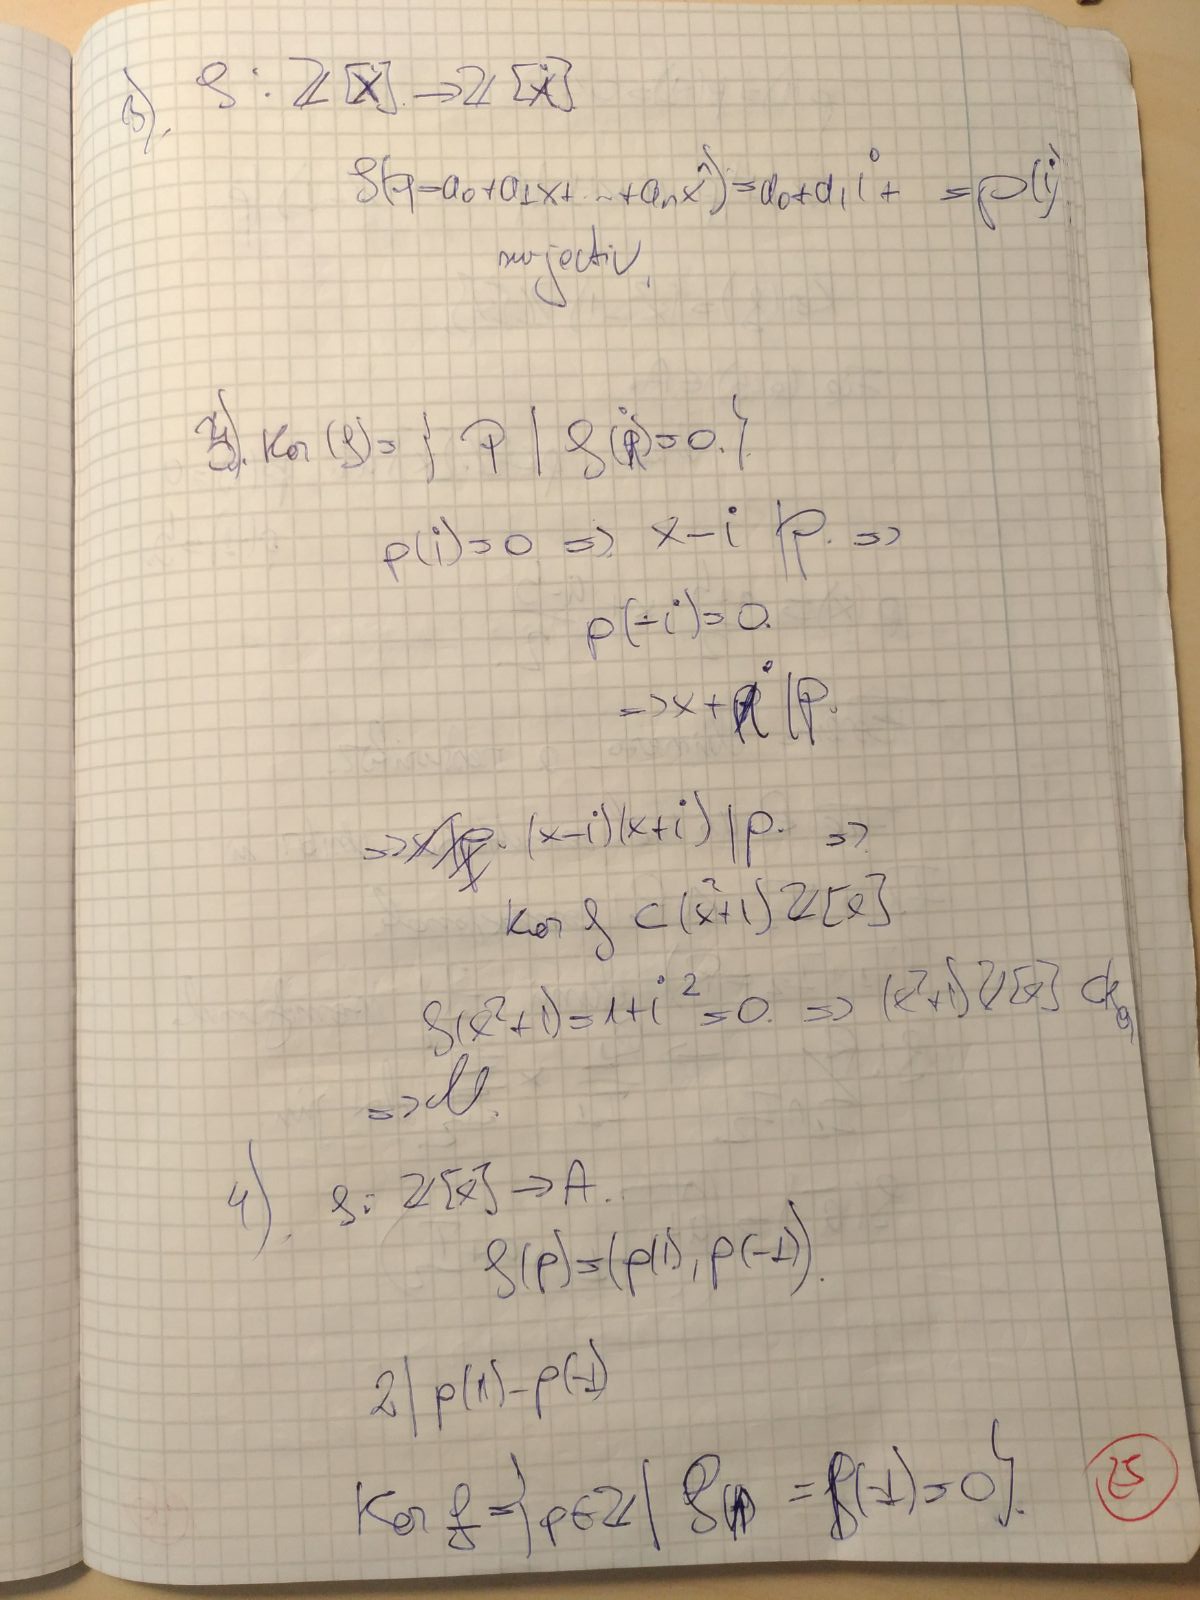 3). φ: ℤ[x] → ℤ[i]
φ(p=a₀+a₁x+...+aₙxⁿ)=a₀+a₁i+ =p(i)
surjectiv.
Ker(φ)={P | φ(p)=0.}
p(i)=0 => x-i | p. =>
p(-i)=0.
=> x+i | p.
=> (x-i)(x+i) | p. =>
Ker φ ⊂ (x²+1) ℤ[x]
φ(x²+1)=1+i²=0. => (x²+1) ℤ[x] ⊂
=>
4). φ: ℤ[x] → A.
φ(p)=(p(1), p(-1)).
2 | p(1)-p(-1)
Ker φ={p∈ℤ | = (-1)=0}.
25